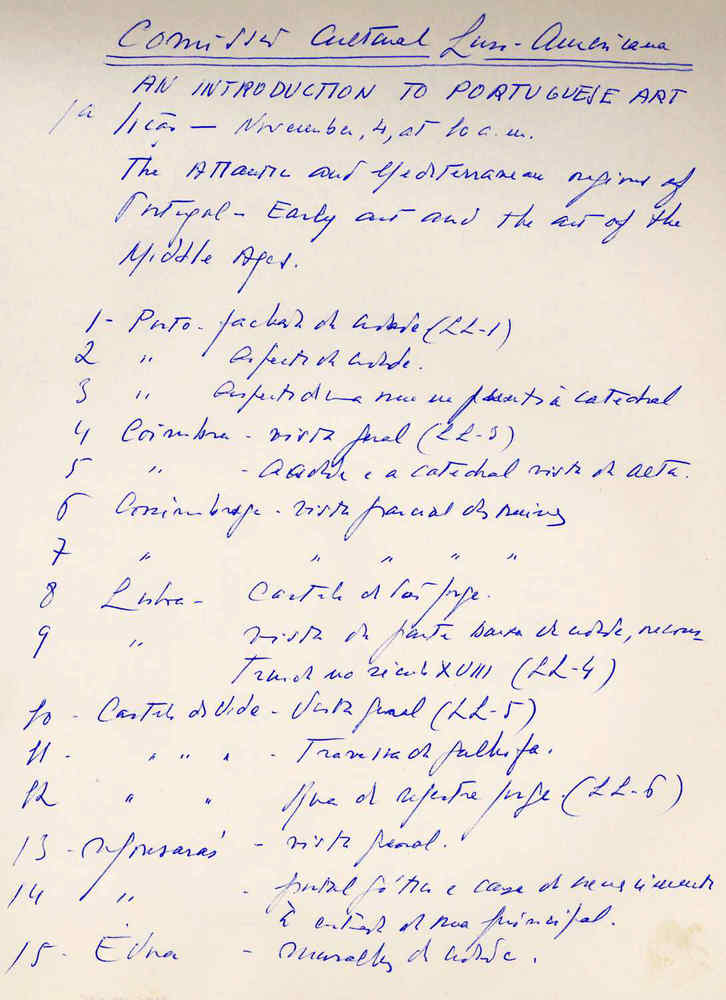 Comissão Cultural Luso-Americana
AN INTRODUCTION TO PORTUGUESE ART
1a lição — November, 4, at 10 a.m.
The Atlantic and Mediterranean regions of
Portugal - Early art and the art of the
Middle Ages.
1 - Porto - fachada da cidade (LL-1)
2 " Aspecto da cidade.
3 " Aspecto de uma rua em à catedral
4 Coimbra - vista geral (LL-3)
5 " - A cidade e a catedral vista da alta.
6 Conimbriga - vista parcial das ruinas
7 " " " " "
8 Lisboa - Castelo de São Jorge.
9 " vista da parte baixa da cidade, recons-
truida no século XVIII (LL-4)
10 - Castelo de Vide - Vista geral (LL-5)
11 - " " " - Travessa da
12 " " Rua de Mestre Jorge. (LL-6)
13 - Monsarás - vista geral.
14 " - portal gótico e casa de
À entrada da rua principal.
15 - Évora - muralhas da cidade.